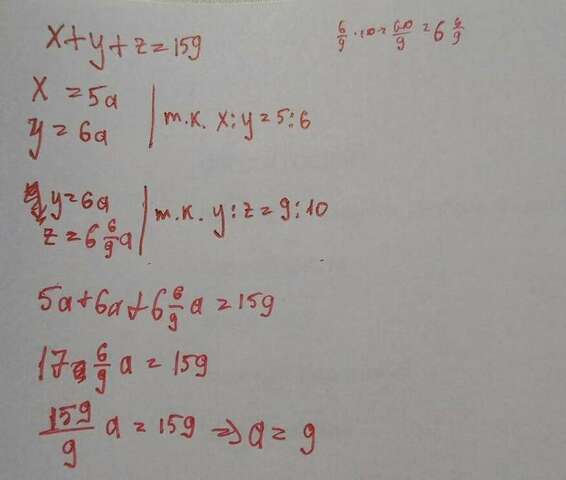 x+y+z=159
6/9 · 10 = 60/9 = 6 6/9
x = 5a
y = 6a
т.к. x:y = 5:6
y=6a
z = 6 6/9 a
т.к. y:z = 9:10
5a+6a+6 6/9 a = 159
17 6/9 a = 159
159/9 a = 159 => a = 9